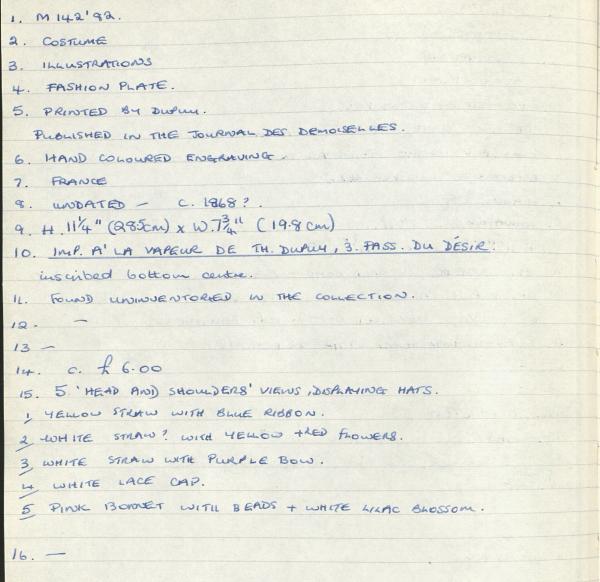 1. M 142'92.
2. COSTUME
3. ILLUSTRATIONS
4. FASHION PLATE.
5. PRINTED BY DUPUY.
PUBLISHED IN THE JOURNAL DES DEMOISELLES.
6. HAND COLOURED ENGRAVING.
7. FRANCE
8. UNDATED – C. 1868?.
9. H. 11¼" (28.5cm) x W. 7¾" (19.8cm)
10. IMP. A' LA VAPEUR DE TH. DUPUY, 3. PASS. DU DÉSIR.
inscribed bottom centre.
11. FOUND UNINVENTORIED IN THE COLLECTION.
12. –
13 –
14. c. £6.00
15. 5 'HEAD AND SHOULDERS' VIEWS, DISPLAYING HATS.
1, YELLOW STRAW WITH BLUE RIBBON.
2, WHITE STRAW? WITH YELLOW + RED FLOWERS.
3, WHITE STRAW WITH PURPLE BOW.
4, WHITE LACE CAP.
5, PINK BONNET WITH BEADS + WHITE LILAC BLOSSOM.
16. –